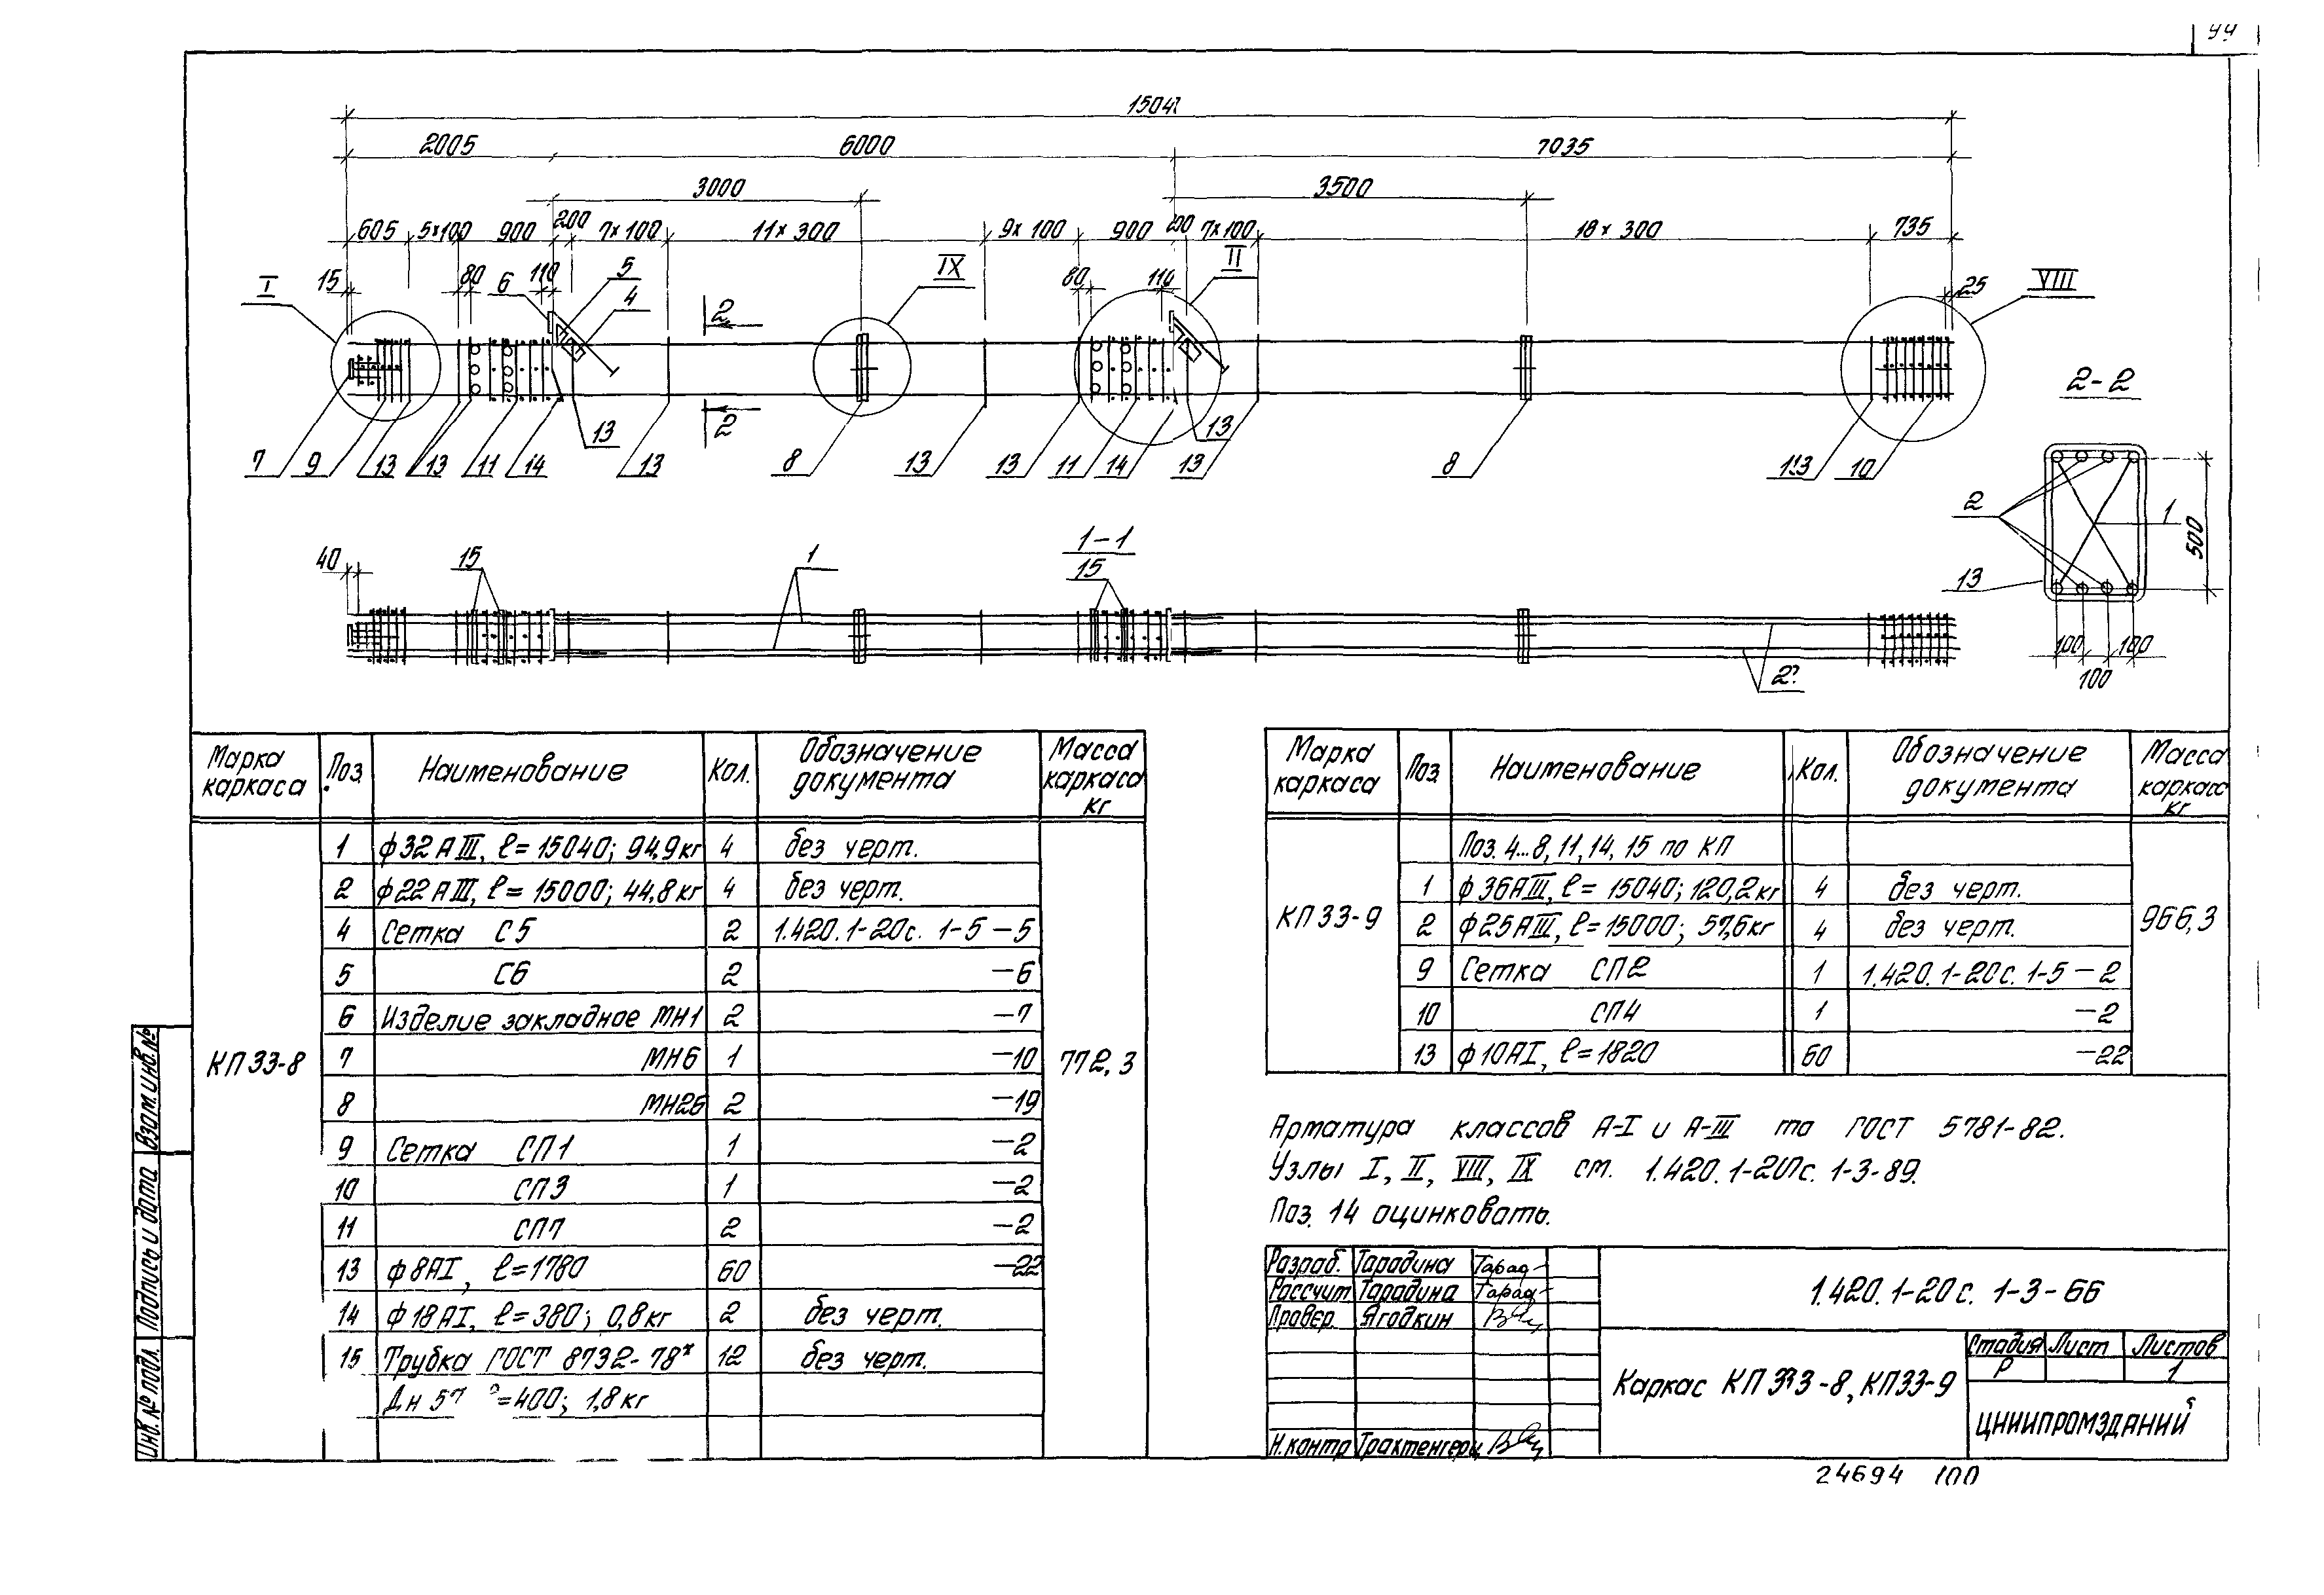 44
1504
2005 6000 7035
3000 3500
605 5×100 900 200 7×100 11×300 9×100 900 200 7×100 18×300 735
I 15 80 6 110 5 4 IX 80 110 II 25 VIII
2
2
2-2
13 13
7 9 13 13 11 14 13 8 13 13 11 14 13 8 13 10
2 1 500
13
100 100
100
1-1
40 15 1 15
2
Марка каркаса Поз. Наименование Кол. Обозначение документа Масса каркаса кг
КП33-8 772,3
1 ф32АIII, ℓ=15040; 94,9кг 4 без черт.
2 ф22АIII, ℓ=15000; 44,8кг 4 без черт.
4 Сетка С5 2 1.420.1-20с. 1-5-5
5 С6 2 -6
6 Изделие закладное МН1 2 -7
7 МН6 1 -10
8 МН26 2 -19
9 Сетка СП1 1 -2
10 СП3 1 -2
11 СП7 2 -2
13 ф8АI, ℓ=1780 60 -22
14 ф18АI, ℓ=380; 0,8кг 2 без черт.
15 Трубка ГОСТ 8732-78* 12 без черт.
Дн 57 =400; 1,8кг
Марка каркаса Поз Наименование Кол. Обозначение документа Масса каркаса кг
КП33-9 966,3
Поз. 4...8, 11, 14, 15 по КП
1 ф36АIII, ℓ=15040; 120,2кг 4 без черт.
2 ф25АIII, ℓ=15000; 57,6кг 4 без черт.
9 Сетка СП2 1 1.420.1-20с. 1-5-2
10 СП4 1 -2
13 ф10АI, ℓ=1820 60 -22
Арматура классов А-I и А-III по ГОСТ 5781-82.
Узлы I, II, VIII, IX см. 1.420.1-20с. 1-3-89.
Поз. 14 оцинковать.
Разраб. Тарадина Тарад-
Рассчит Тарадина Тарад-
Провер. Ягодкин
Н.контр Трахтенгерц
1.420.1-20с. 1-3-66
Каркас КП33-8, КП33-9
Стадия Лист Листов
Р 1
ЦНИИПРОМЗДАНИЙ
Взам. инв. №
Подпись и дата
Инв. № подл.
24694 100